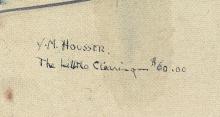 Y. M. HOUSSER.
The Little Clearing — $60.00